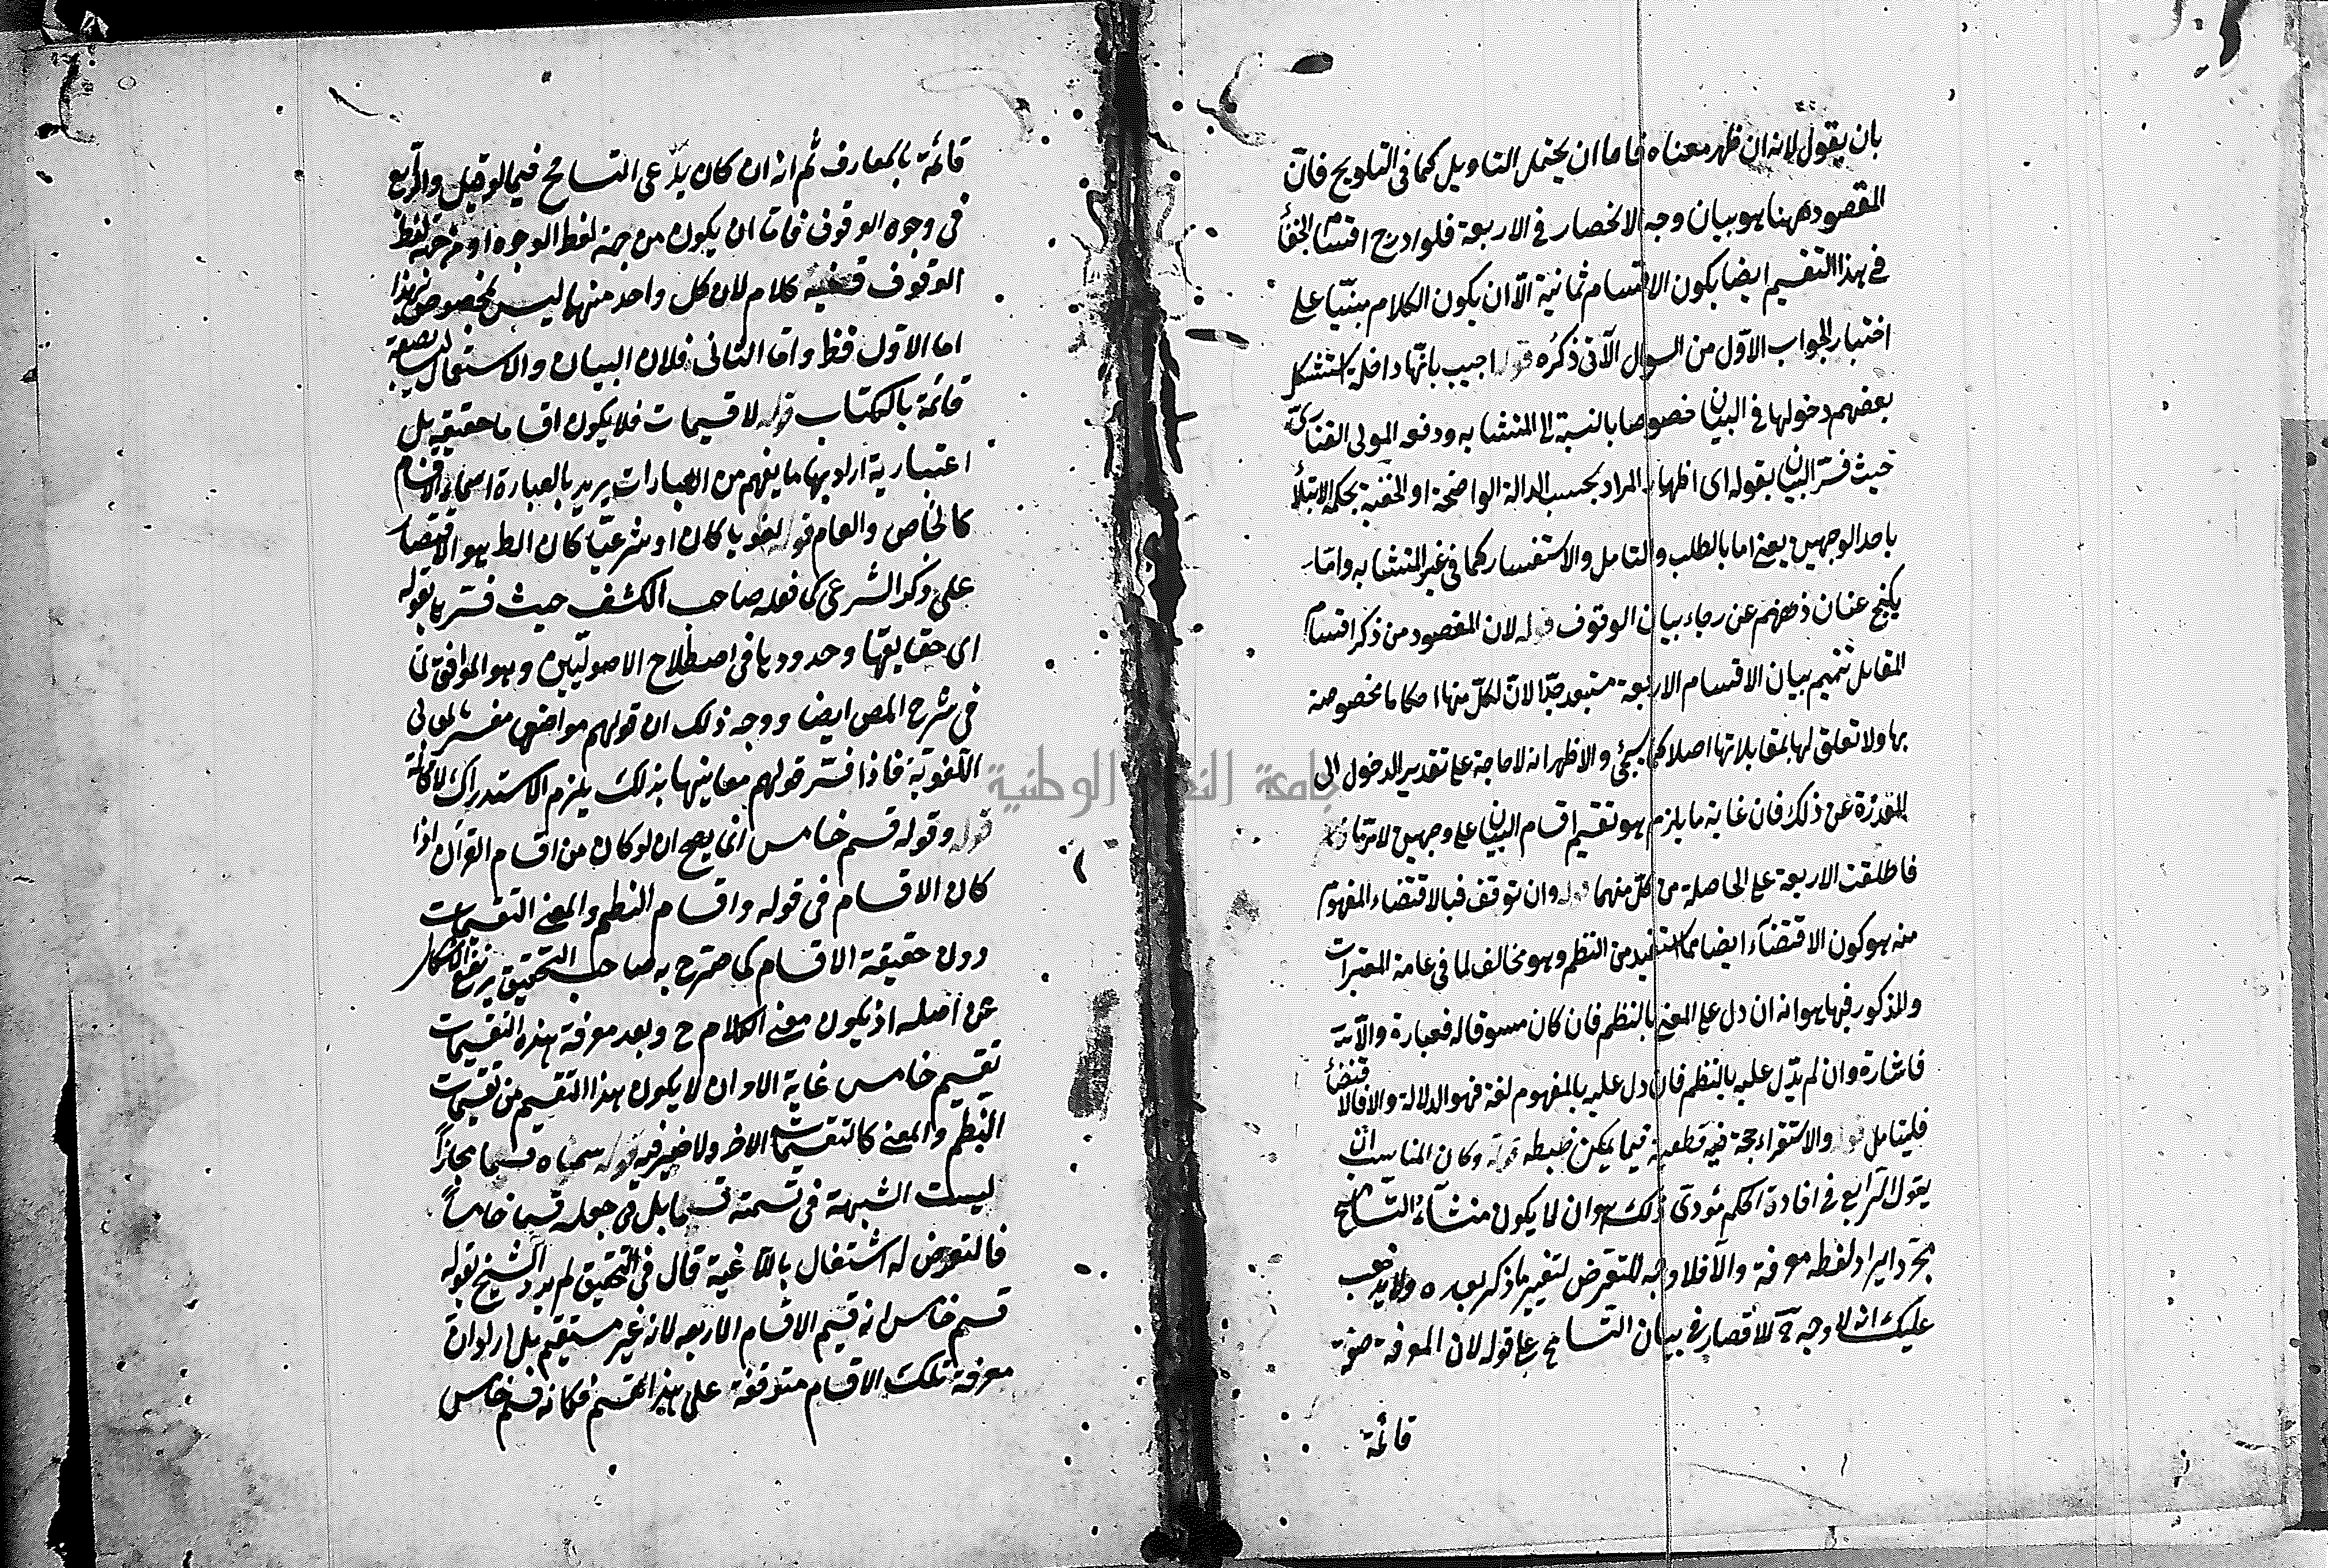 بان يقول لانه ان ظهر معناه فاما ان يحتمل التاويل كما فى التلويح فانّ
المقصود ههنا هو بيان وجه الانحصار فى الاربعة فلو ادرج اقسام الخفأ
فى هذا التقسيم ايضا يكون الاقسام ثمانية الّا ان يكون الكلام مبنيّا على
اختيار الجواب الاوّل من السوال الآتى ذكره قوله اجيب بانّها داخلة استشكل
بعضهم دخولها فى البيان خصوصا بالنسبة الى المتشابه ودفعه المولى الفنارىّ
حيث فسّر البيان بقوله اى اظهار المراد بحسب الدالة الواضحة او الخفية بحكمة الابتلأ
باحد الوجهين يعنى اما بالطلب والتامل والاستفسار كما فى غير المتشابه وامّا
يكبح عنان ذهنهم عن رجاء بيان الوقوف قوله لان المقصود من ذكر اقسام
المقابل تتميم بيان الاقسام الاربعة مستبعد جدّا لانّ لكلّ منها احكاما مخصوصة
بها ولا تعلق لها بمقابلاتها اصلا كما سيجئ والاظهر انه لا حاجة على تقدير الدخول الى
المعذرة عن ذلك فان غاية ما يلزم هو تقسيم اقسام البيان على وجهين لا مرّتان
فاطلقت الاربعة على الحاصلة من كلّ منهما قوله وان توقف فبالاقتضاء المفهوم
منه هو كون الاقتضآء ايضا مما استفيد من النظم وهو مخالف لما فى عامة المعتبرات
والمذكور فيها هو انه ان دل على المعنى بالنظم فان كان مسوقا له فعبارة والّا
فاشارة وان لم يدّل عليه بالنظم فان دل عليه بالمفهوم لغة فهو الدلالة والا فالاقتضأ
فليتامل قوله والاستقراء حجة فيه قطعية فيما يمكن ضبطه قوله وكان المناسب ان
يقول الرابع فى افادة الحكم مؤدّى ذلك هو ان لا يكون منشأ التسامح
مجرّد ايراد لفظه معرفة والّا فلا وجه للتعرّض لتغيير ما ذكر بعده ولا يذهب
عليك انه لا وجه للاقتصار فى بيان التسامح على قوله لان المعرفة صفة
قائمة
قائمة بالعارف ثم انه ان كان يدّعى التسامح فيما لو قيل والرّابع
فى وجوه الوقوف فامّا ان يكون من جهة لفظ الوجوه او من جهة لفظ
الوقوف ففيه كلام لان كل واحد منها ليس مخصوص بهذا
اما الاول فظ وامّا الثانى فلان البيان والاستعمال ليسا بصفة
قائمة بالكتاب قوله لا قسيمات فلا يكون اقساما حقيقية بل
اعتبارية اراد بها ما يفهم من العبارات يريد بالعبارة اسماء الاقسام
كالخاص والعام قوله لغويا كان او شرعيّا كان الظ هو الاقتصار
على ذكر الشرعى كما فعله صاحب الكشف حيث فسّرها بقوله
اى حقايقها وحدودها فى اصطلاح الاصوليّين وهو الموافق لما
فى شرح المص ايضا ووجه ذلك ان قولهم مواضعها مفسر بالمعانى
اللغويّة فاذا فسّر قولهم معانيها بذلك يلزم الاستدراك لا محالة
قوله وقوله قسم خامس انّما يصح ان لو كان من اقسام القرآن اذا
كان الاقسام فى قوله واقسام النظم والمعنى التقسيمات
دون حقيقة الاقسام كما صرّح به صاحب التحقيق يرتفع الاشكال
عن اصله اذ يكون معنى الكلام ح وبعد معرفة هذه التقسيمات
تقسيم خامس غاية الامر ان لا يكون هذا التقسيم من تقسيمات
النظم والمعنى كالتقسيمات الاخر ولا ضير فيه قوله سمّاه قسما مجازاً
ليست الشبهة فى تسمته قسما بل فى جعله قسما خامساً
فالتعرض له اشتغال بالّا غية قال فى التحقيق لم يرد الشيخ بقوله
قسم خامس انه قسيم الاقسام الاربعه لانه غير مستقيم بل اراد ان
معرفة تلك الاقسام متوقفة على هذا القسم فكانه قسم خامس